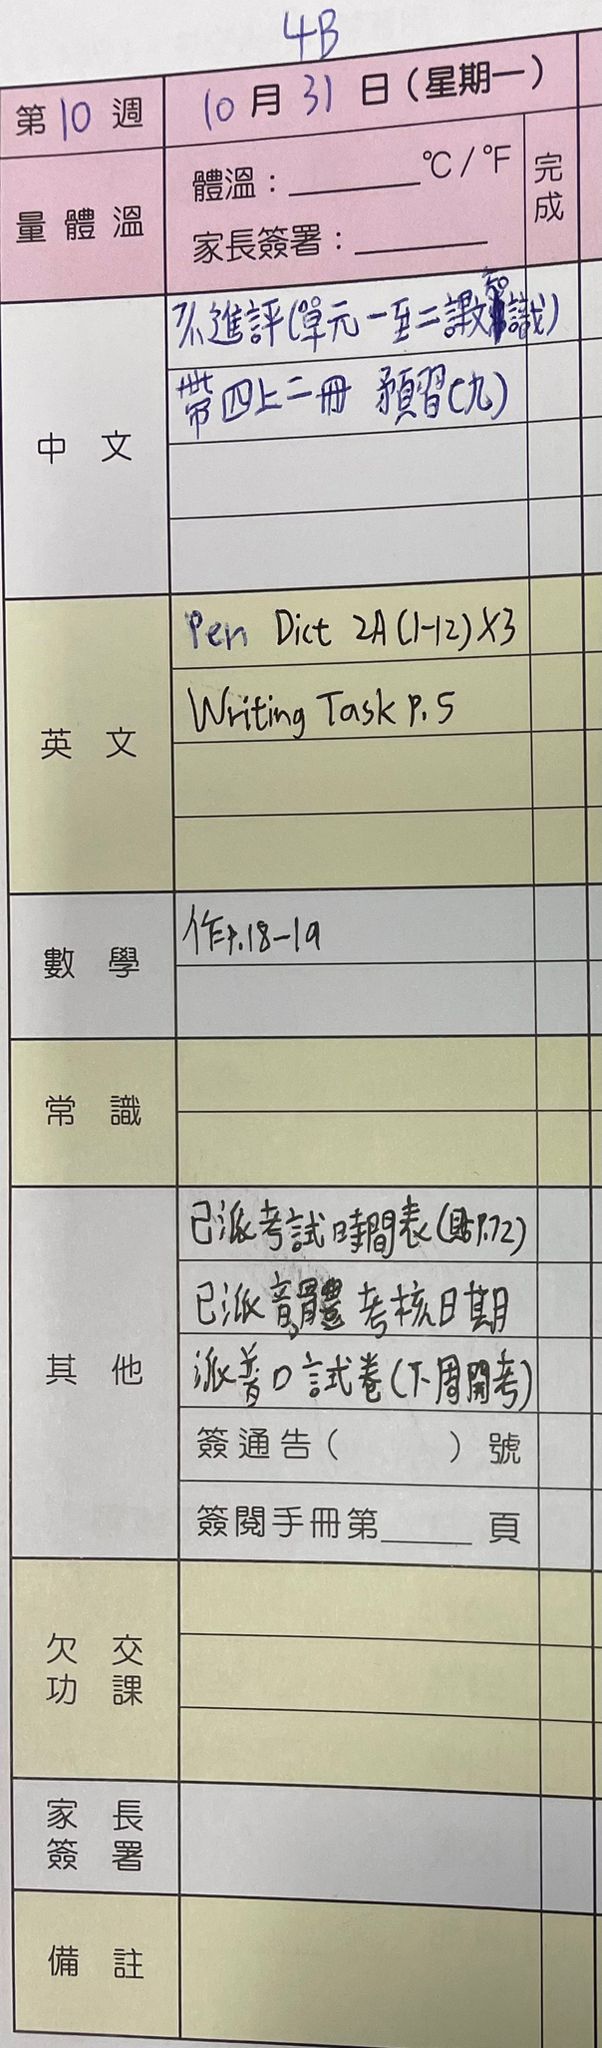 4B
第10週 10月31日(星期一)
量體溫 體溫：______°C/°F 完成
家長簽署：______
中文
進評(單元一至二課文知識)
帶四上二冊 預習(九)
英文
Pen Dict 2A(1-12)X3
Writing Task P.5
數學
作P.18-19
常識
其他
已派考試時間表(貼P.72)
已派音,體 考核日期
派普口試卷(下周開考)
簽通告( )號
簽閱手冊第_____頁
欠交功課
家長簽署
備註